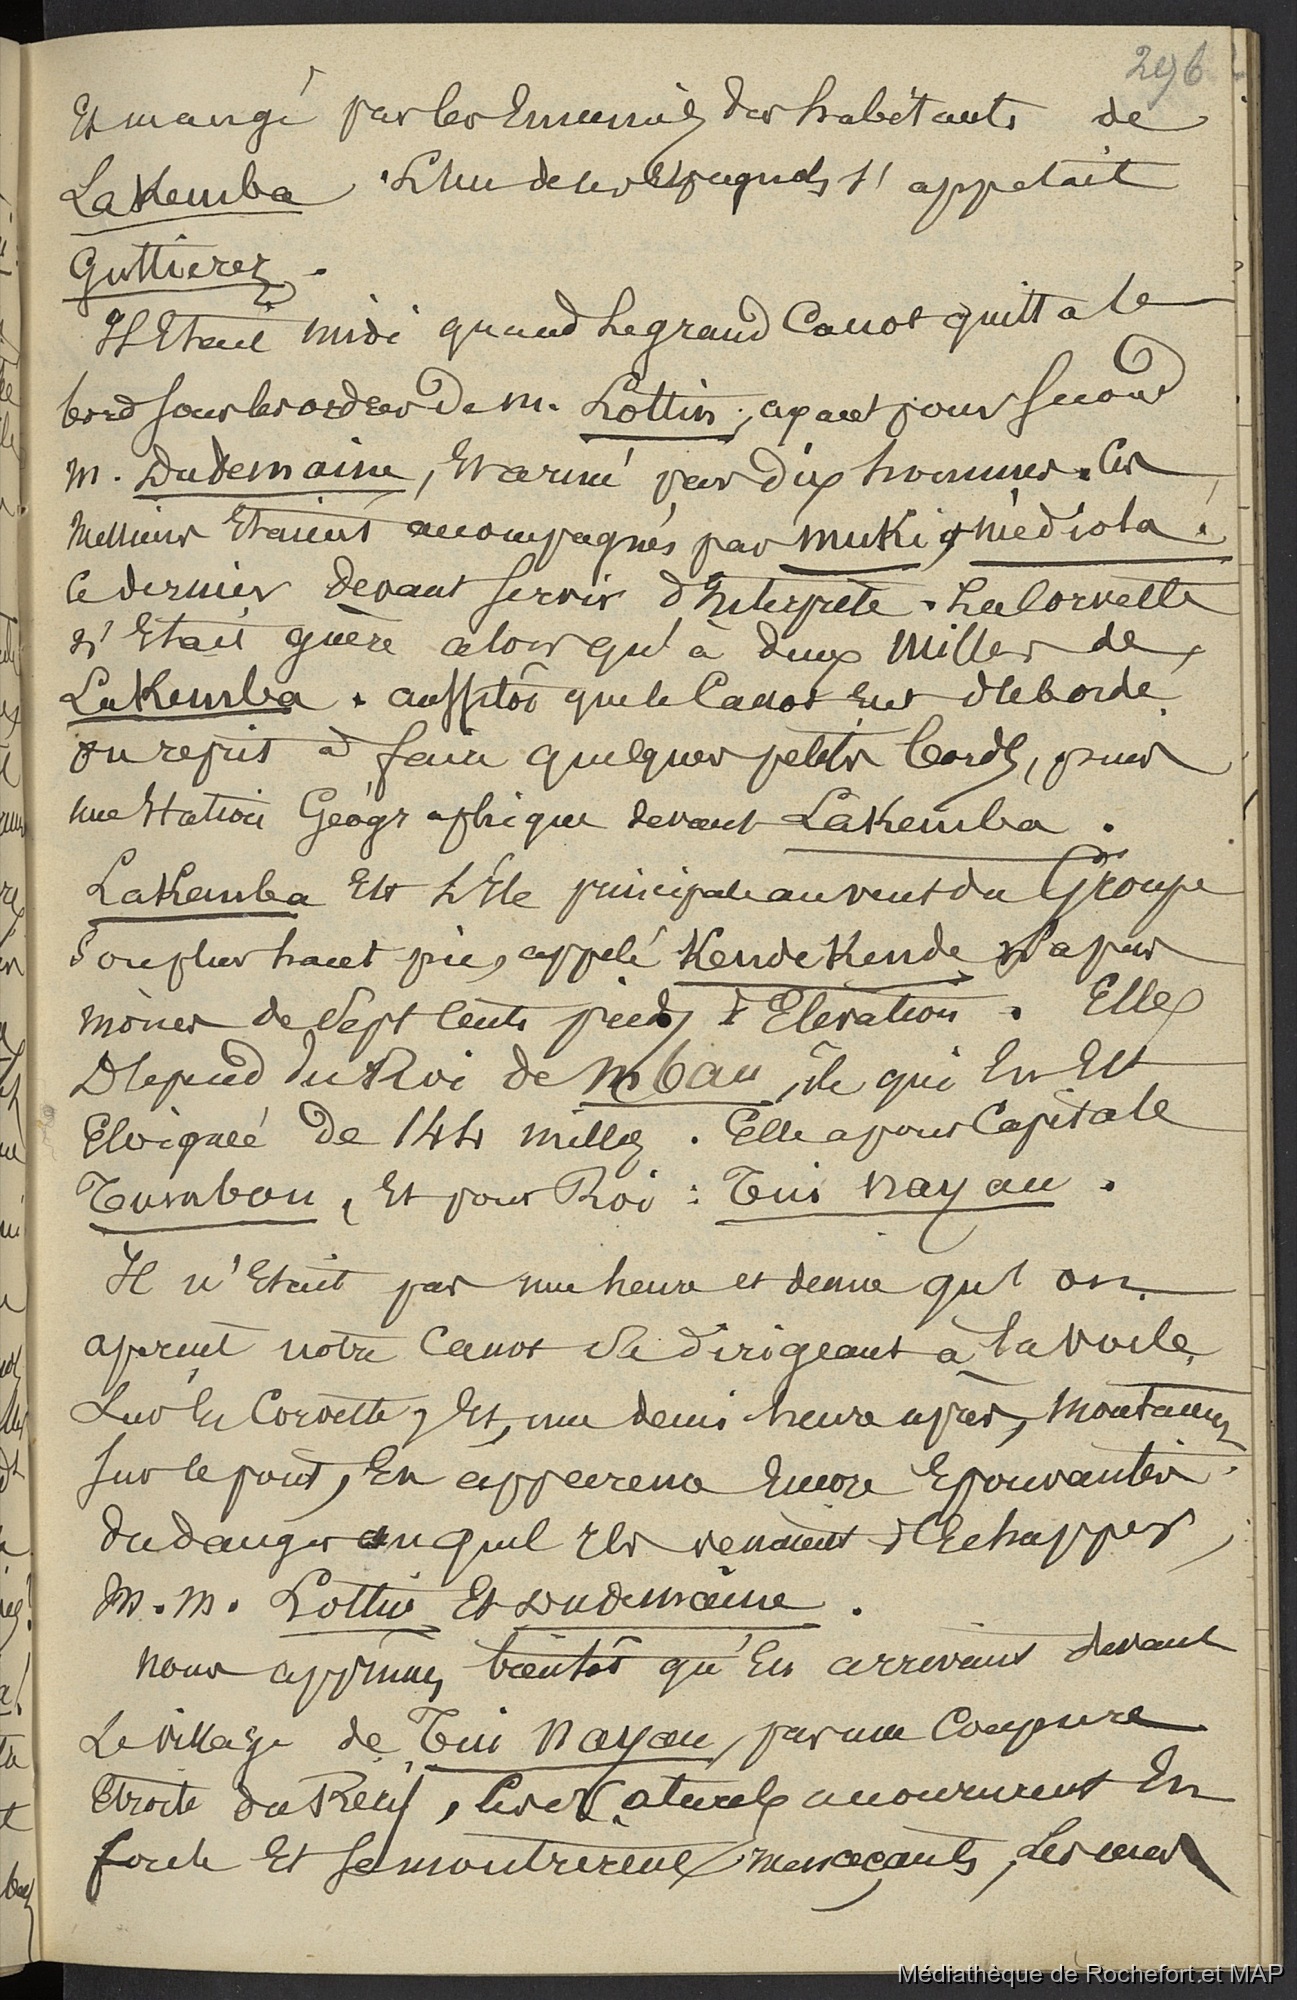 296
Et mangé par les Ennemis des habitants de
Lakemba. L'un de ces Espagnols s'appelait
Guttierez.
Il Etait midi quand le grand Canot quitta le
bord sous les ordres de M. Lottin, ayant pour second
M. Dudemaine, Et armé par dix hommes. Ces
Messieurs Etaient accompagnés par Muki & Médiola.
Ce dernier devant servir d'Interprète. La Corvette
n'Etait guère alors qu'à deux Milles de
Lakemba. aussitôt que le Canot eut déborde,
on reprit à faire quelques petits bords, pour
une Station Géographique devant Lakemba.
Lakemba Est l'Ile principale au vent du Groupe
Son plus haut pic, appelé KendeKende n'a pas
moins de Sept Cents pieds d'Elévation. Elle
Dépend du Roi de Mbau, île qui En Est
Eloignée de 144 milles. Elle a pour Capitale
Tumbou, Et pour Roi : Tui Nayau.
Il n'Etait pas une heure et demie qu'on
aperçut notre Canot Se dirigeant à la voile
Sur la Corvette, Et, une demi heure après, Montaient
sur le pont, En apparence Encore Epouvantés
du danger auquel Ils venaient d'Echapper,
M. M. Lottin Et Dudemaine.
Nous apprîmes bientôt qu'En arrivant devant
Le village de Tui Nayau, par une Coupure
Etroite du Récif, les naturels accoururent En
foule Et se montrèrent menaçants, les uns
Médiathèque de Rochefort.et MAP